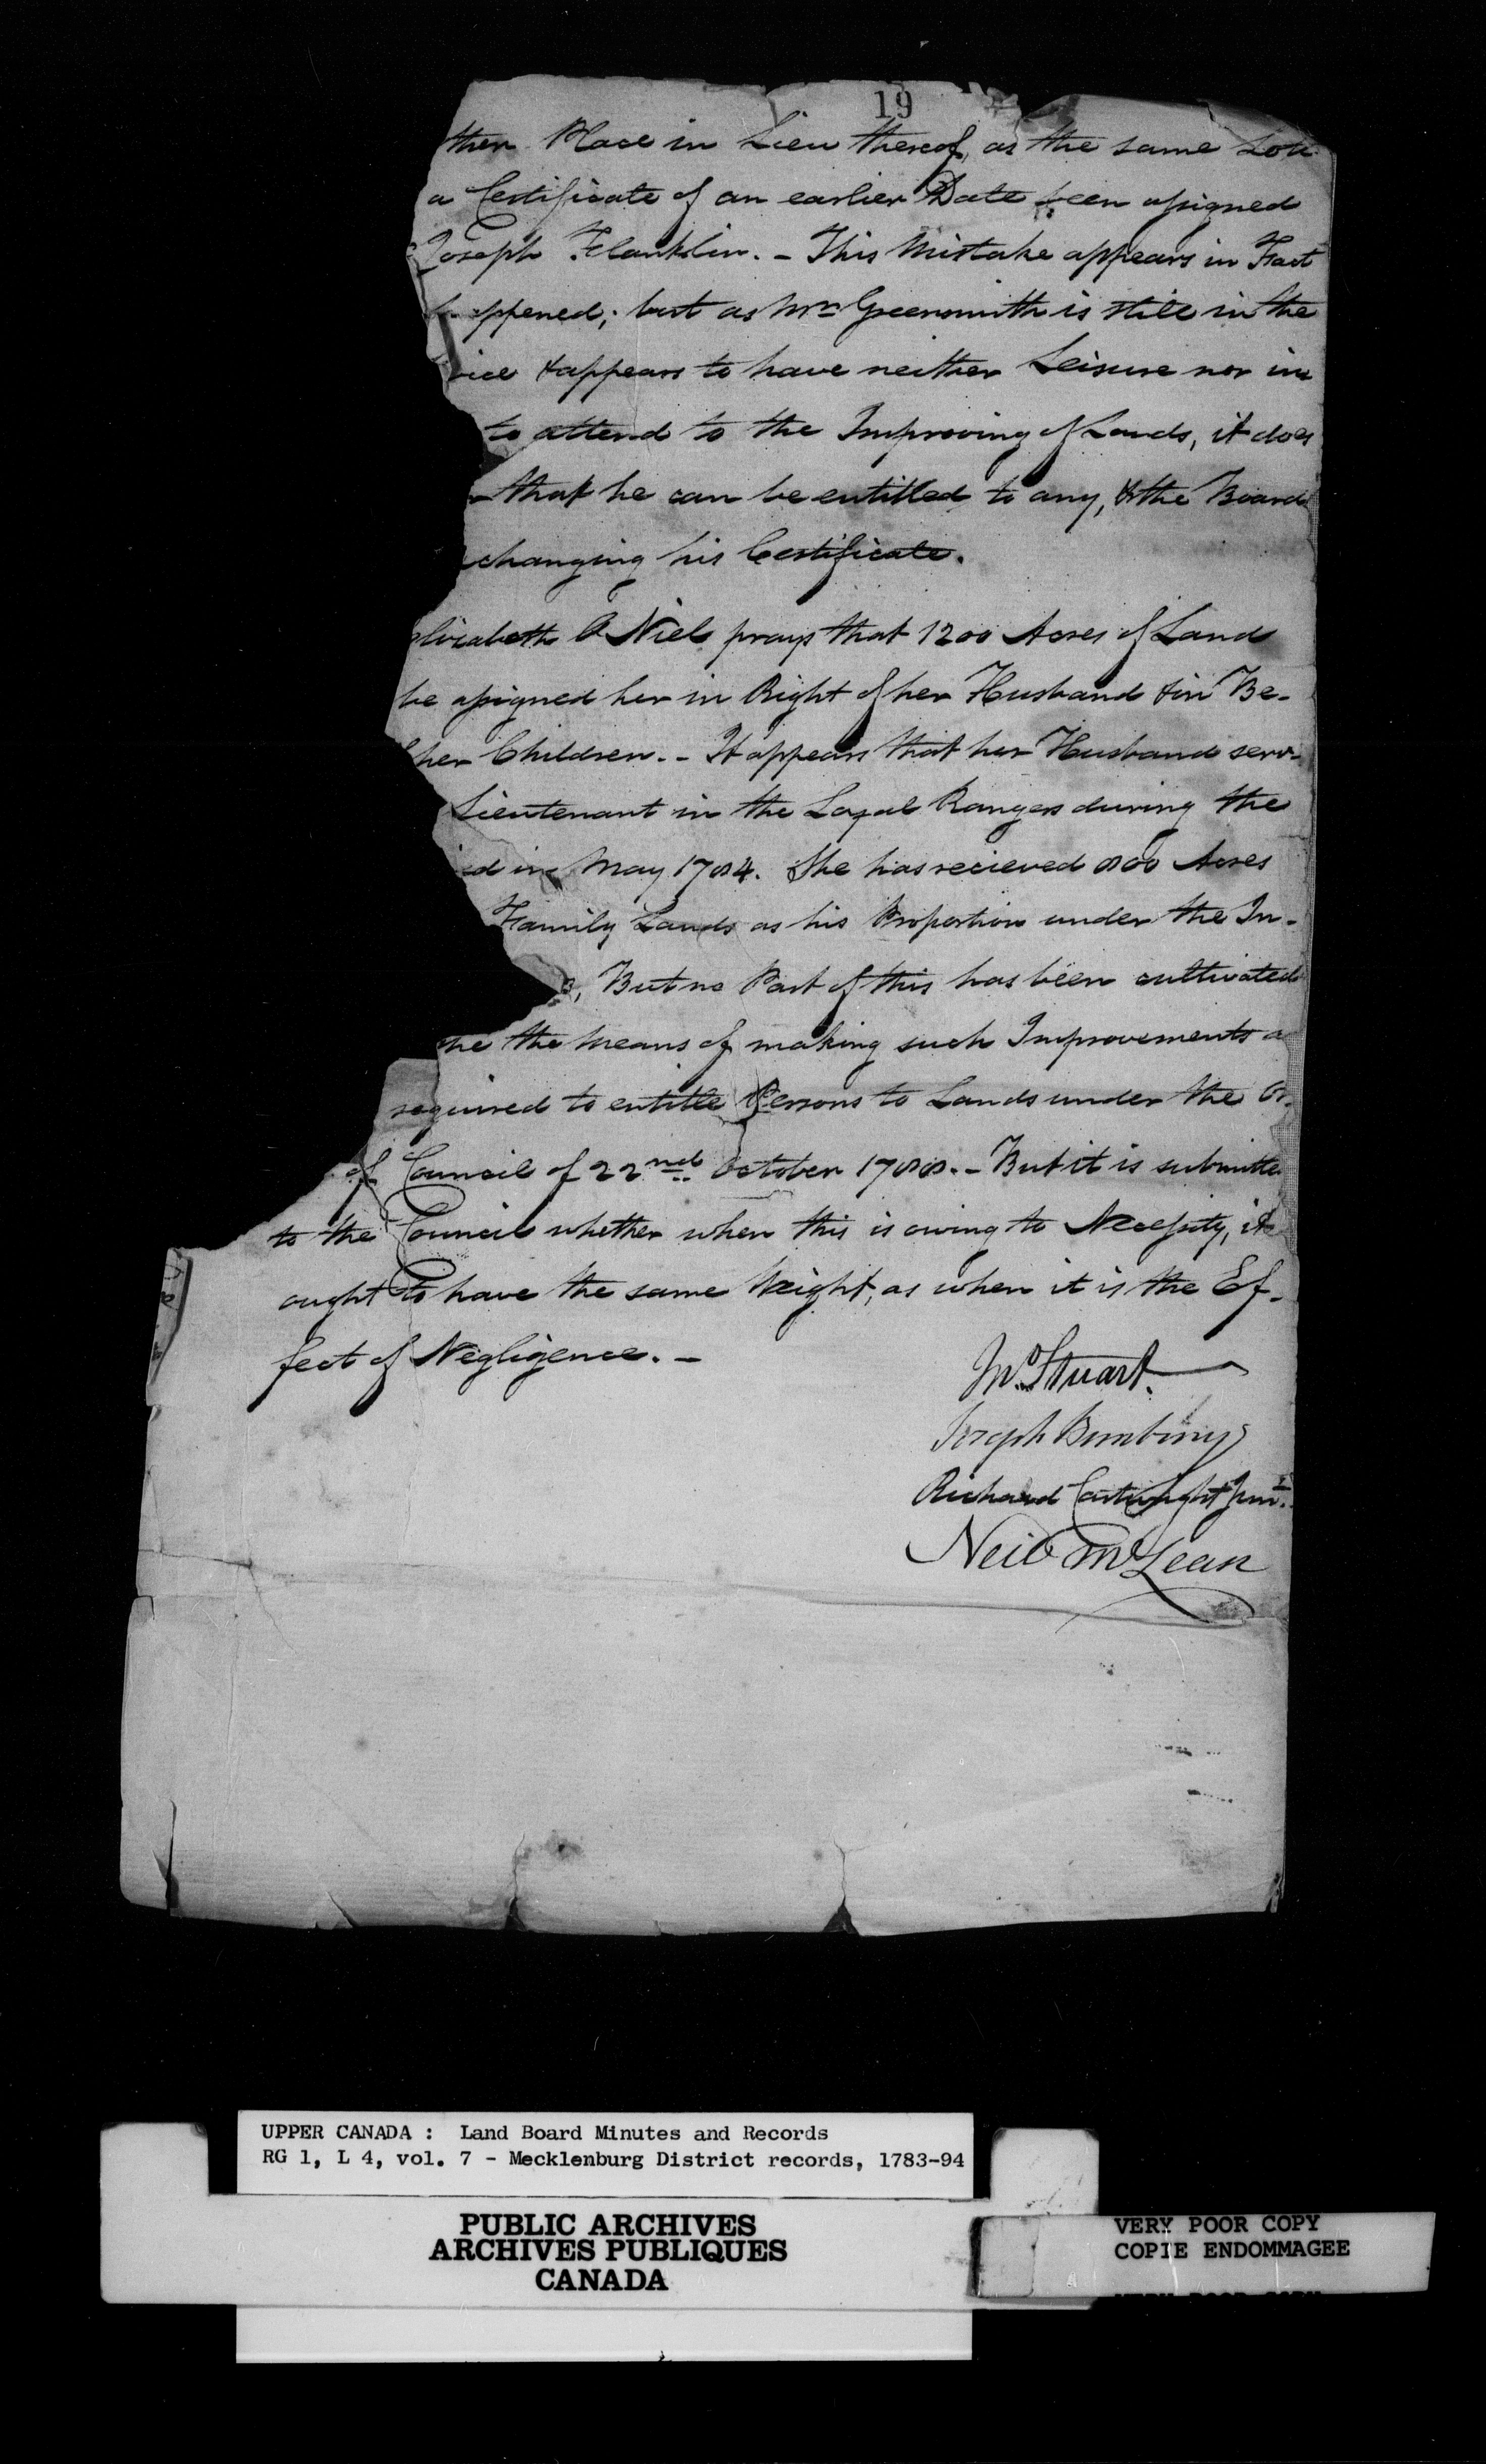 19
ther Place in Lieu thereof, as the same Lott
a Certificate of an earlier Date been assigned
Joseph Franklin. - This Mistake appears in Fact
happened; but as Mr. Greensmith is still in the
vice & appears to have neither Leisure nor in
to attend to the Improving of Lands, it does
that he can be entitled to any, & the Board
changing his Certificate.
Elizabeth O Niel prays that 1200 Acres of Land
be assigned her in Right of her Husband & in Be-
her Children. - It appears that her Husband serv-
Lieutenant in the Loyal Rangers during the
ed in May 1784. She has recieved 800 Acres
Family Lands as his Proportion under the In-
s, But no Part of this has been cultivated
she the Means of making such Improvements a
required to entitle Persons to Lands under the Or
of Council of 22nd October 1788. - But it is submitte
to the Council whether when this is owing to Necessity, it
ought to have the same Weight, as when it is the Ef-
fect of Negligence. -
Jno Stuart.
Joseph Bunbury
Richard Cartwright Junr.
Neil McLean
UPPER CANADA : Land Board Minutes and Records
RG 1, L 4, vol. 7 - Mecklenburg District records, 1783-94
PUBLIC ARCHIVES
ARCHIVES PUBLIQUES
CANADA
VERY POOR COPY
COPIE ENDOMMAGEE